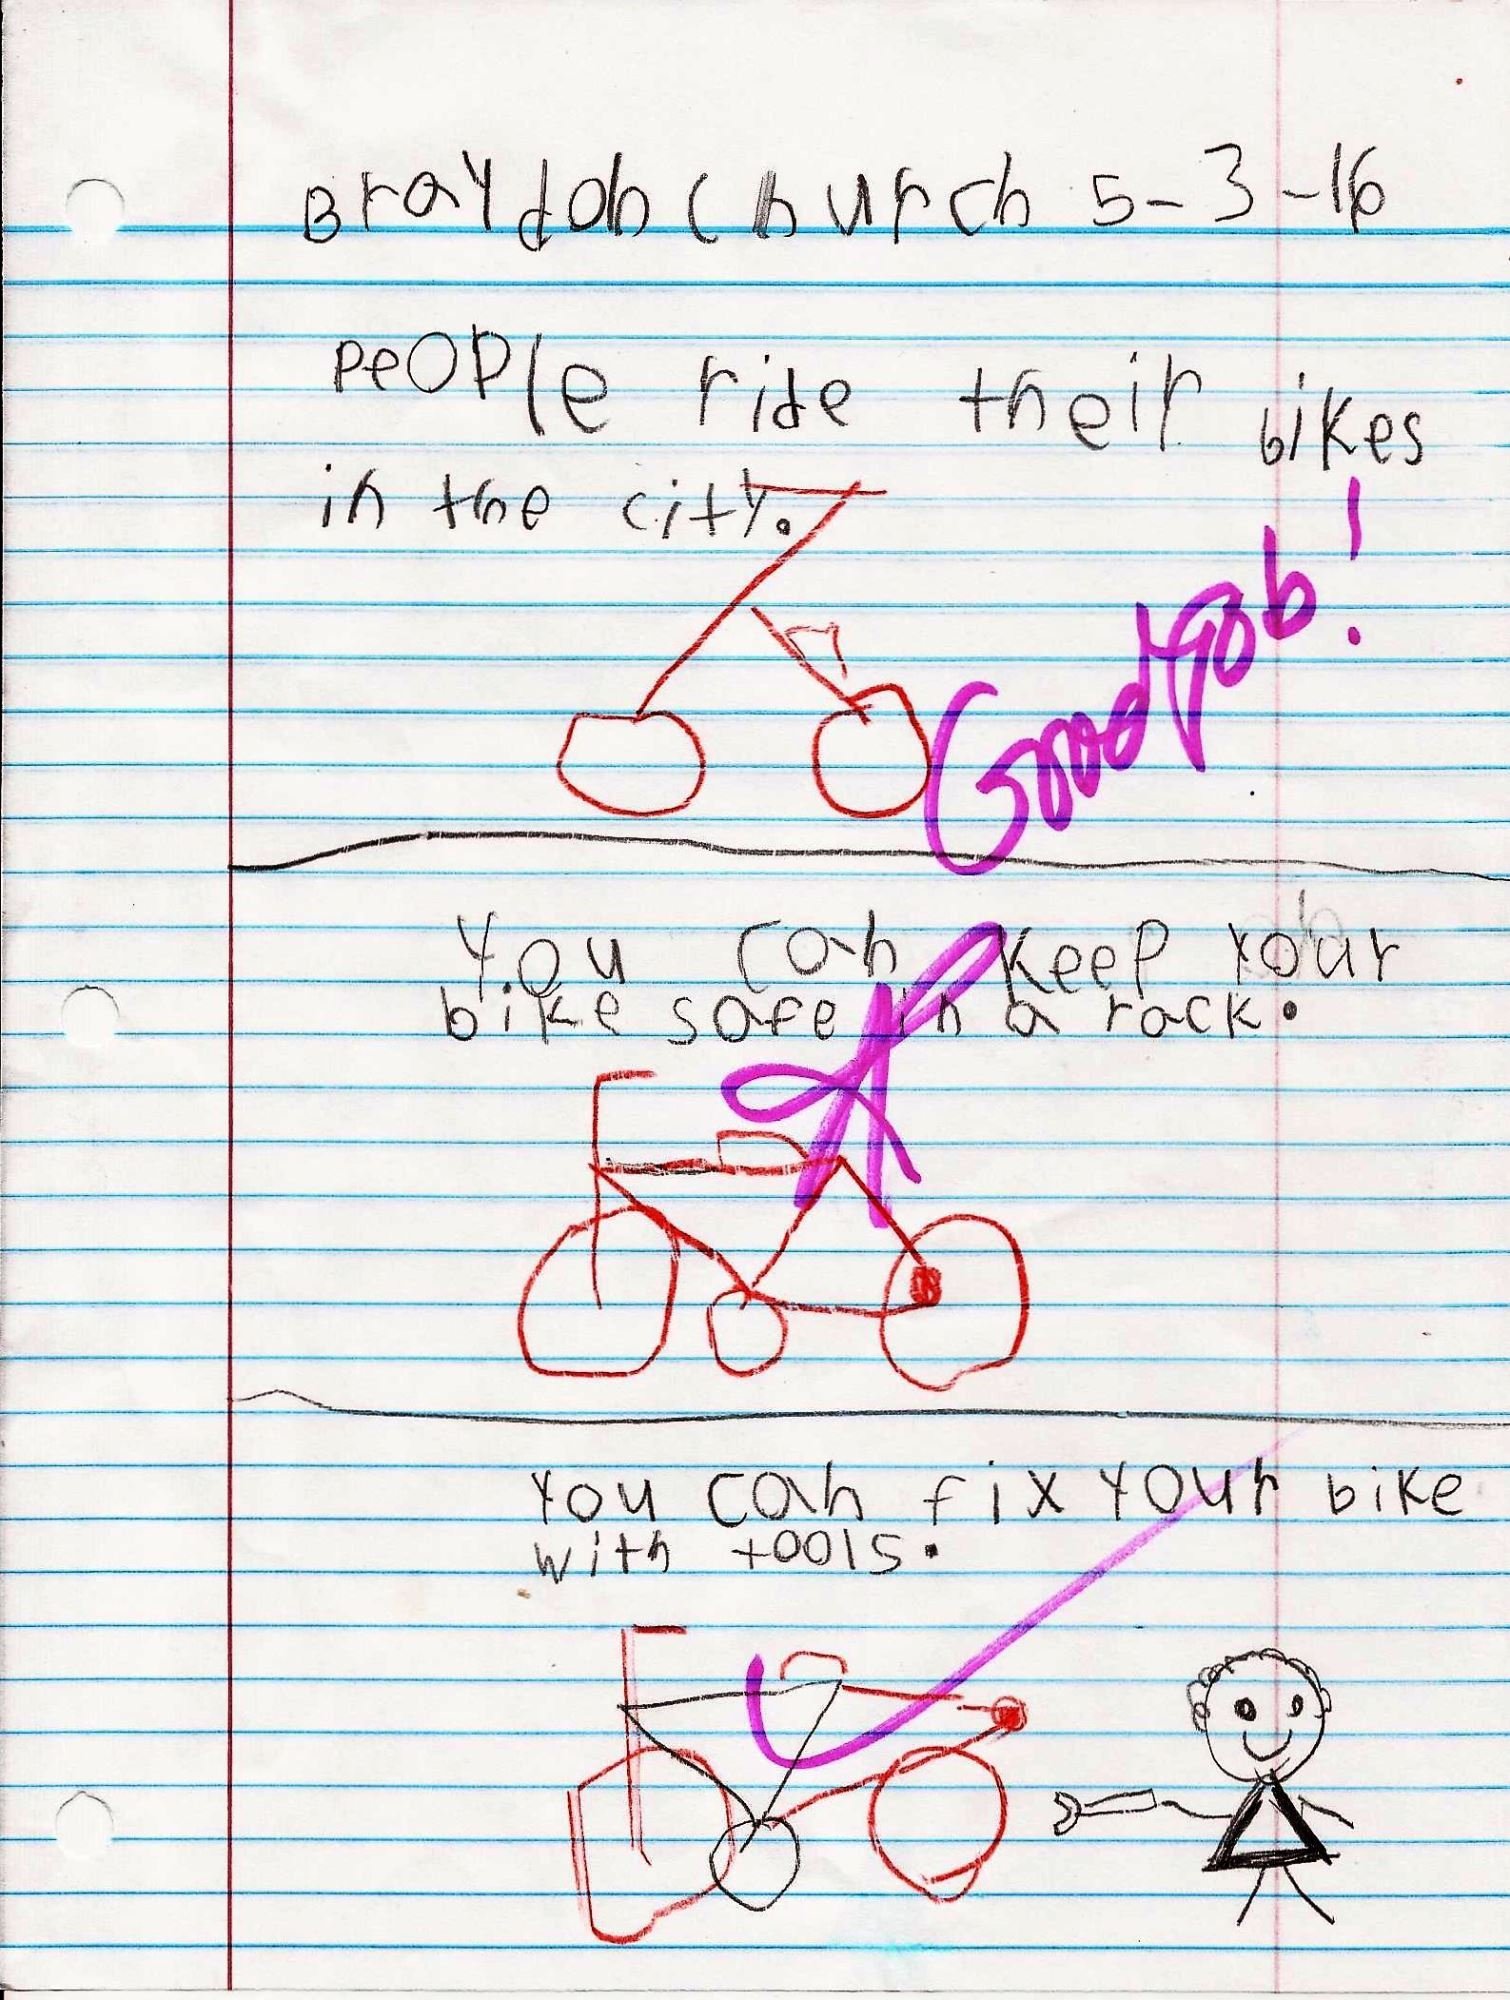 Braydon Church 5-3-16
PeOPle ride their bikes
in the city.
Good Job!
You can keep your
bike safe in a rack.
A
You can fix your bike
with tools.